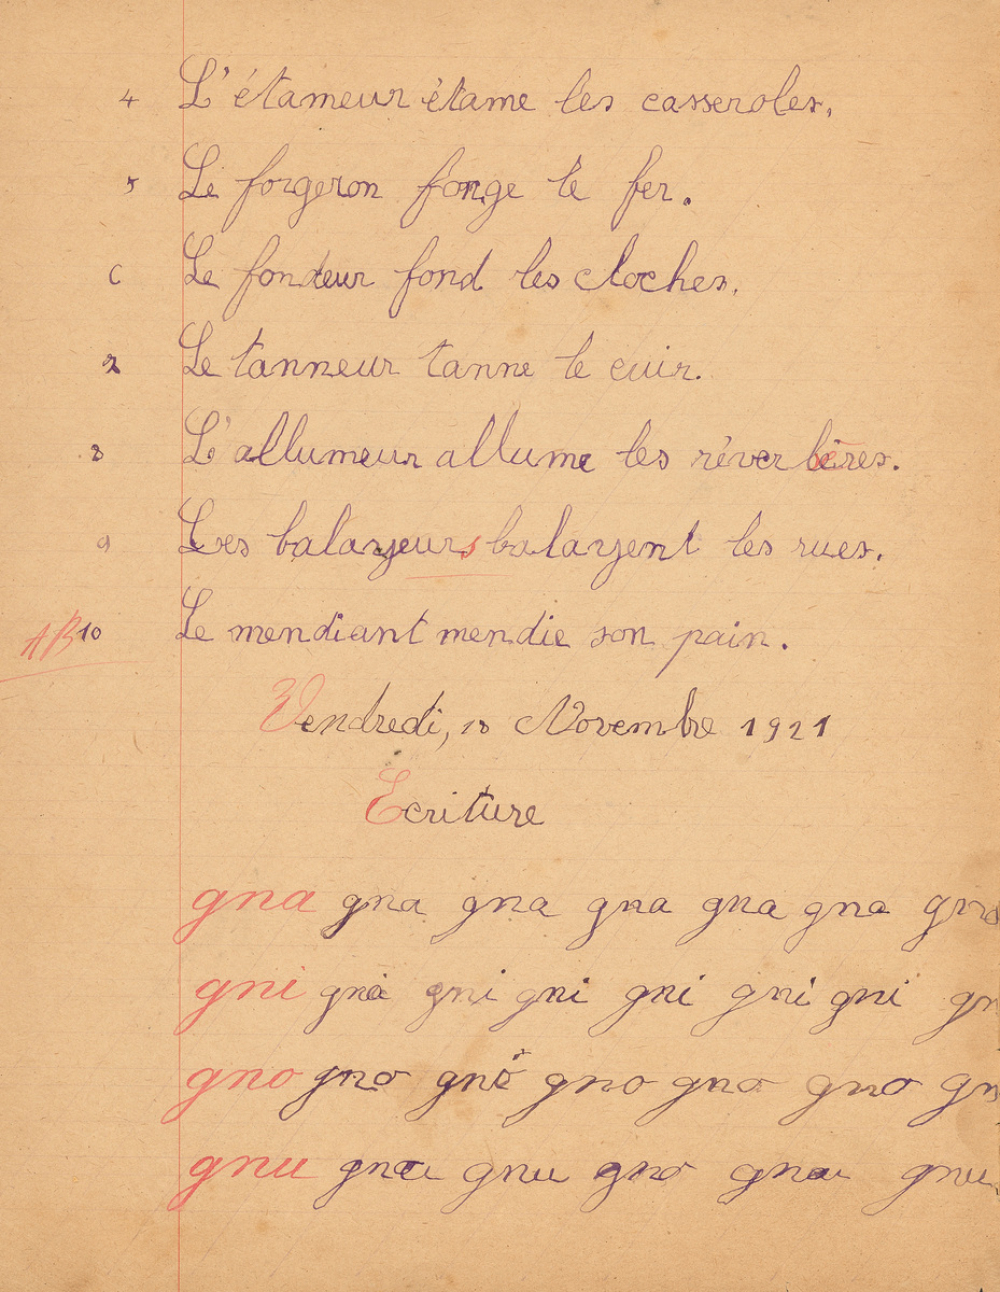 4 L'étameur étame les casseroles.
5 Le forgeron forge le fer.
6 Le fondeur fond les cloches.
Le tanneur tanne le cuir.
8 L'allumeur allume les réverbères.
9 Les balayeurs balayent les rues.
AB 10 Le mendiant mendie son pain.
Vendredi, 18 Novembre 1921
Ecriture
gna gna gna gna gna gna gna
gni gna gni gni gni gni gni gn
gno gno gno gno gno gno gn
gnu gnu gnu gno gnu gnu